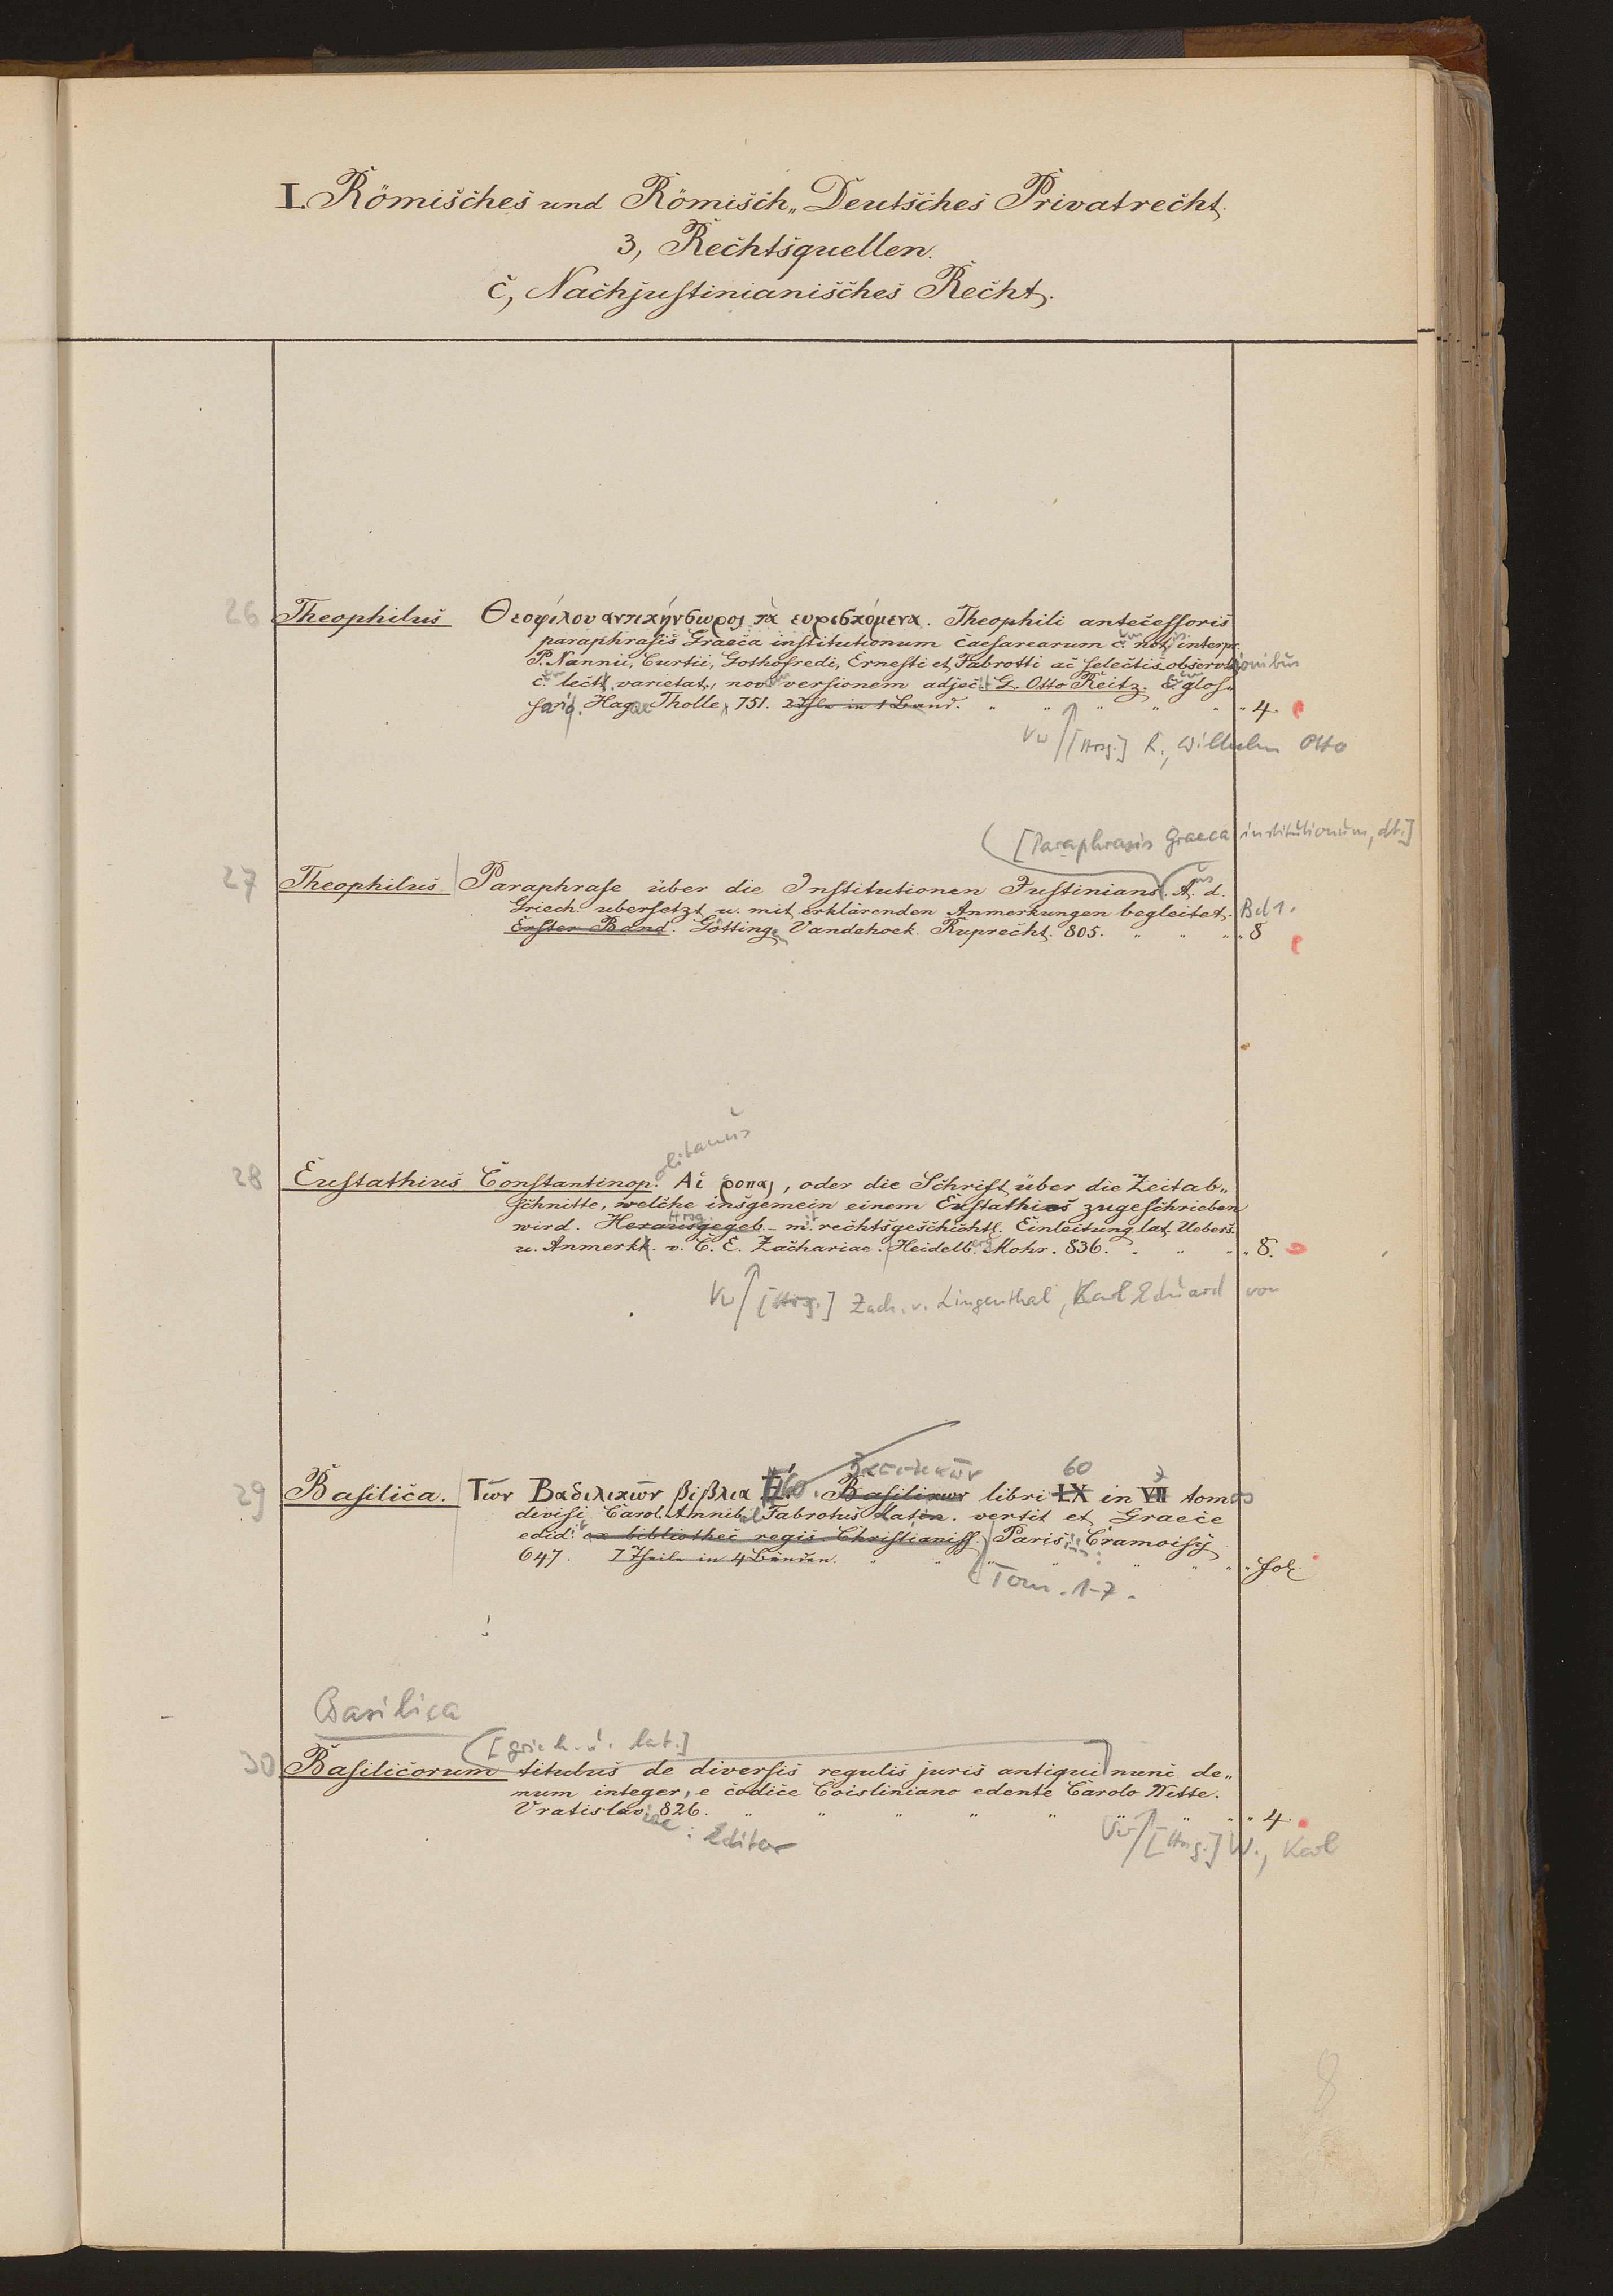 I. Römisches und Römisch„ Deutsches Privatrecht.
3, Rechtsquellen.
c, Nachjustinianisches Recht.
26 Theophilus Θεοφίλου αντικήνσωρος τὰ ευρισκόμενα. Theophili antecessoris
paraphrasis Graeca institutionum caesarearum c. not. interpr.
P. Nannii, Curtii, Gothofredi, Ernesti et Fabrotti ac selectis observationibus
c. lectt. varietat., nov. versionem adjecit G. Otto Reitz. C. glos„
sario. Hagae Tholle, 751. 2 Thle in 1 Band. „ 4.
Vw [Hrsg.] R., Wilhelm Otto
[Paraphrasis Graeca institutionum, dt.]
27 Theophilus Paraphrase über die Institutionen Justinians. Aus d.
Griech. ubersetzt u. mit erklärenden Anmerkungen begleitet. Bd 1.
Erster Band. Göttingen Vandehoek. Ruprecht. 805. „ 8
olitanus
28 Eustathius Constantinop. Ai ῥοπας, oder die Schrift über die Zeitab„
schnitte, welche insgemein einem Eustathios zugeschrieben
Hrsg.
wird. Herausgegeb. mit rechtsgeschichtl. Einleitung lat. Uebers.
u. Anmerkk. v. C. E. Zachariae. Heidelberg Mohr. 836. „ 8.
Vw [Hrsg.] Zach. v. Lingenthal, Karl Eduard von
Βασιλικῶν 60 7
29 Basilica. Τῶν Βασιλικῶν βιβλια 60. Basilikωv libri LX in VII tomos
divisi Carol. Annibal Fabrotus Latin. vertit et Graece
edid. ex bibliothec regis Christianiss. Parisiis: Cramoisy
647. 7 Theile in 4 Bänden. „ fol.
Tom. 1-7.
Basilica
[griech. u. lat.]
30 Basilicorum titulus de diversis regulis juris antiqui nunc de„
mum integer, e codice Coisliniano edente Carolo Witte.
Vratislaviae 826. „ 4.
: Editor
Vw [Hrsg.] W., Karl
8